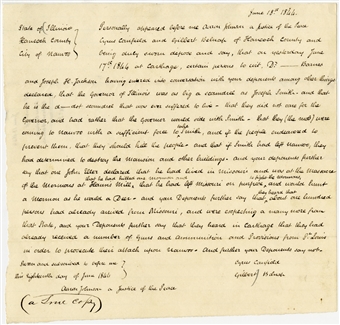 June 18th 1844.
State of Illinois } Personally appeared before me Aaron Johnson a Justice of the Peace
Hancock County } Cyrus Canfield and Gilbert Belnap of Hancock County and
City of Nauvoo } being duly sworn depose and say, that on yesterday June
17th 1844 at Carthage, certain persons to wit, Barnes
and Joseph H. Jackson having entered into conversation with your deponents among other things
declared, that the Governor of Illinois was as big a scoundrel as Joseph Smith, and that
he is the damdest scoundrel that was ever suffered to live - that they did not care for the
Governor, and had rather that the Governor would side with Smith - that they (the mob) were
coming to Nauvoo with a sufficient force to take Smith, and if the people endeavored to
prevent them, that they should kill the people - and that if Smith had left Nauvoo, they
had determined to destroy the Mansion and other buildings - and your deponents further
say that one John Eller declared that he had lived in Missouri and was at the Massacre
that he had killed one mormon and
of the Mormons at Hauns Mill, that he had left Missouri on purpose, and would hunt
a Mormon as he would a Deer - and your Deponents further say that they heard that about one hundred
persons had already arrived from Missouri, and were expecting as many more from
that State, and your Deponents further say that they heard in Carthage that they had
already received a number of Guns and Ammunition and Provisions from St. Louis
in order to prosecute their attack upon Nauvoo - And further your Deponents say not.
Sworn and subscribed to before me } Cyrus Canfield
this eighteenth day of June 1844 } Gilbert Belnap
Aaron Johnson a Justice of the Peace
(a True copy)